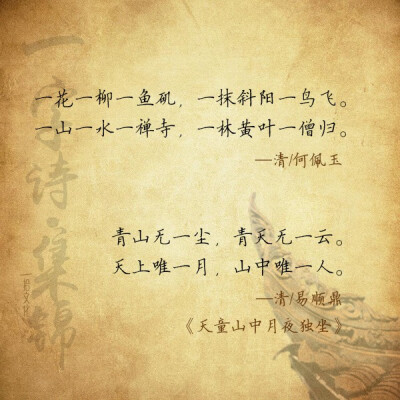 一字诗·集锦
一花一柳一鱼矶，一抹斜阳一鸟飞。
一山一水一禅寺，一林黄叶一僧归。
—清/何佩玉
青山无一尘，青天无一云。
天上唯一月，山中唯一人。
—清/易顺鼎
《天童山中月夜独坐》